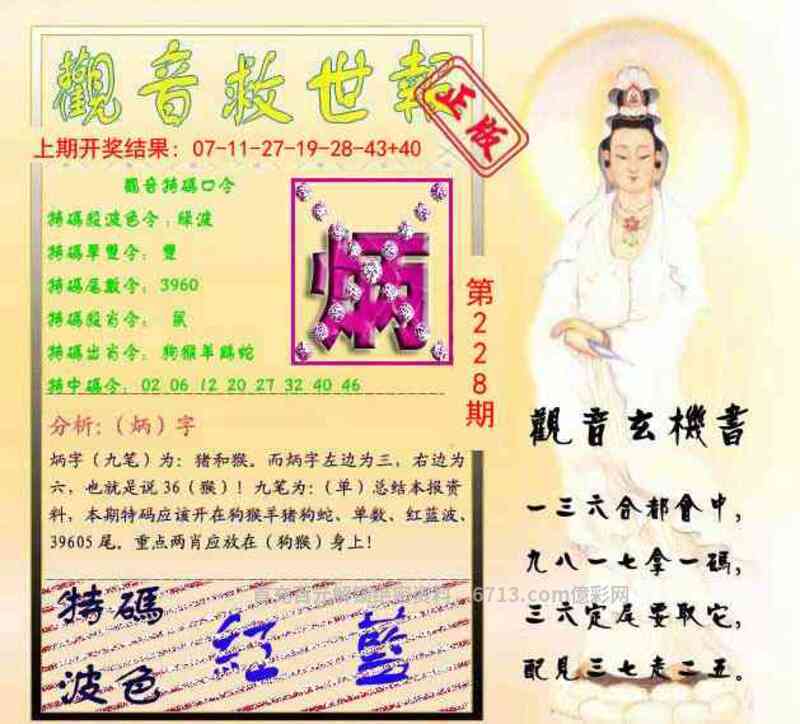 觀音救世報
正版
上期开奖结果：07-11-27-19-28-43+40
觀音特碼口令
特碼殺波色令：綠波
特碼單雙令：雙
特碼尾數令：3960
特碼殺肖令：鼠
特碼出肖令：狗猴羊豬蛇
特中碼令：02 06 12 20 27 32 40 46
炳
第228期
分析：（炳）字
炳字（九笔）为：猪和猴。而炳字左边为三，右边为
六，也就是说36（猴）！九笔为：（单）总结本报资
料，本期特码应该开在狗猴羊猪狗蛇、单数、红蓝波、
39605尾。重点两肖应放在（狗猴）身上！
特碼
波色
紅 藍
6713.com億彩网
觀音玄機書
一三六合都會中，
九八一七拿一碼，
三六定尾要取它，
配見三七走二五。